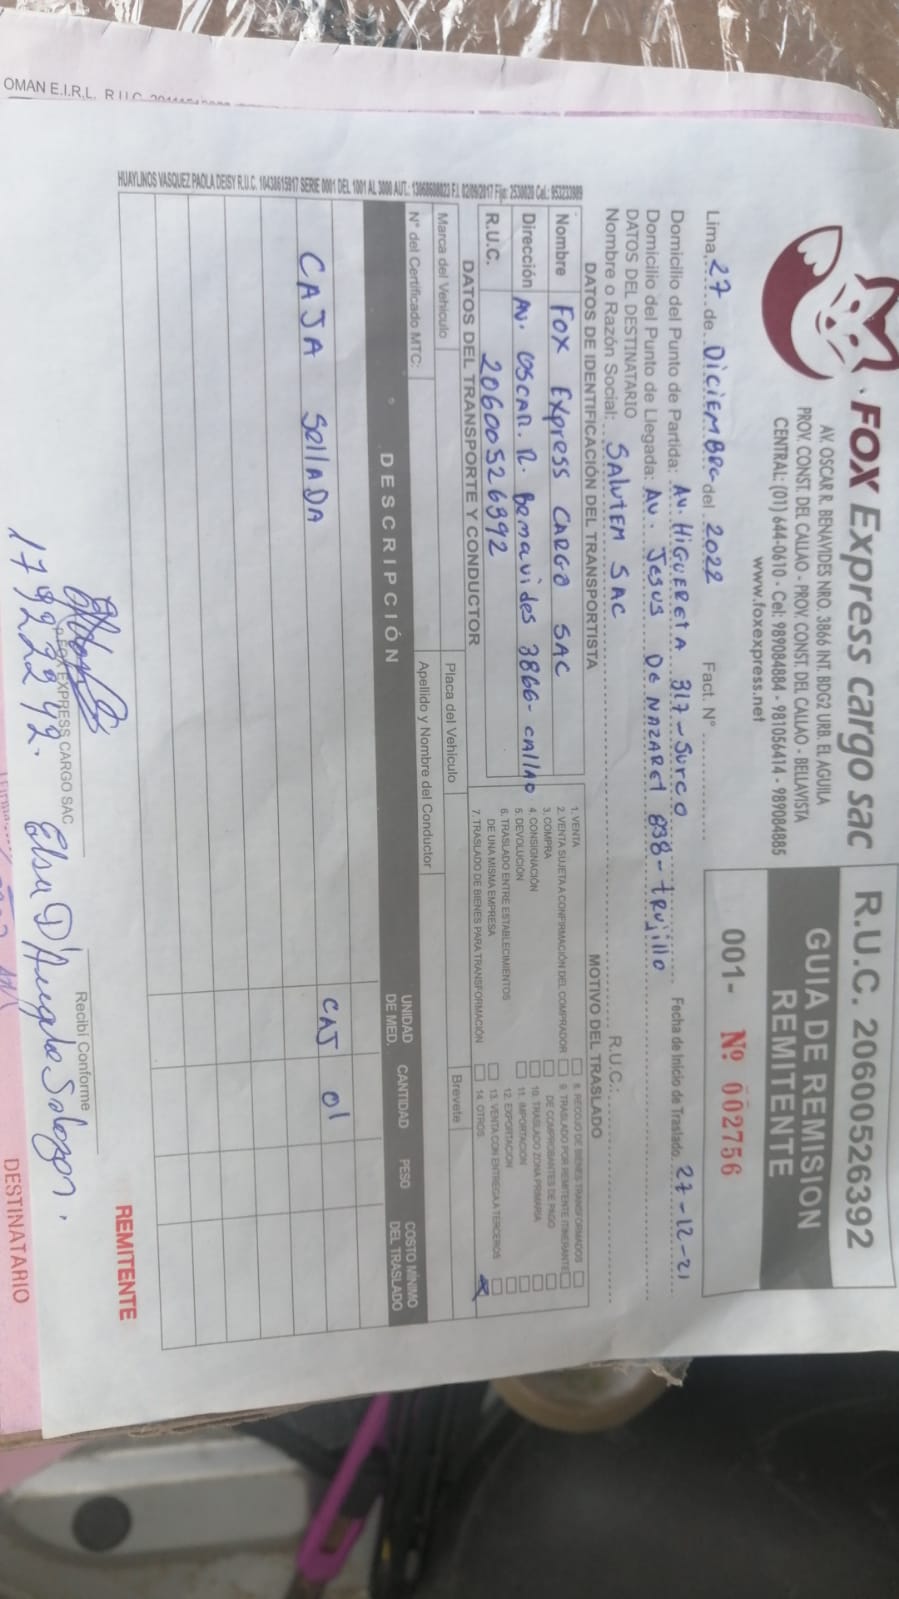 FOX Express cargo sac
AV. OSCAR R. BENAVIDES NRO. 3866 INT. BDG2 URB. EL AGUILA
PROV. CONST. DEL CALLAO - PROV. CONST. DEL CALLAO - BELLAVISTA
CENTRAL: (01) 644-0610 - Cel: 989084884 - 981056414 - 989084885
www.foxexpress.net
R.U.C. 20600526392
GUIA DE REMISION
REMITENTE
001- Nº 002756
Lima, 27 de DiciEMBRE del 2022 Fact. N°
Domicilio del Punto de Partida: AV. HIGUERETA 317 - SURCO Fecha de Inicio de Traslado. 27-12-21
Domicilio del Punto de Llegada: AV. JESUS DE NAZARET 838 - TRUJILLO
DATOS DEL DESTINATARIO
Nombre o Razón Social: SALUTEM SAC R.U.C.:
DATOS DE IDENTIFICACIÓN DEL TRANSPORTISTA
Nombre FOX EXpress CARGO SAC
Dirección AV. OSCAR. R. Benavides 3866 - CALLAO
R.U.C. 20600526392
MOTIVO DEL TRASLADO
1. VENTA
2. VENTA SUJETA A CONFIRMACIÓN DEL COMPRADOR
3. COMPRA
4. CONSIGNACIÓN
5. DEVOLUCIÓN
6. TRASLADO ENTRE ESTABLECIMIENTOS
DE UNA MISMA EMPRESA
7. TRASLADO DE BIENES PARA TRANSFORMACIÓN
8. RECOJO DE BIENES TRANSFORMADOS
9. TRASLADO POR REMITENTE ITINERANTE
DE COMPROBANTES DE PAGO
10. TRASLADO ZONA PRIMARIA
11. IMPORTACION
12. EXPORTACION
13. VENTA CON ENTREGA A TERCEROS
14. OTROS X
DATOS DEL TRANSPORTE Y CONDUCTOR
Marca del Vehiculo Placa del Vehículo Brevete
N° del Certificado MTC: Apellido y Nombre del Conductor
DESCRIPCIÓN UNIDAD DE MED. CANTIDAD PESO COSTO MÍNIMO DEL TRASLADO
CAJA SELLADA CAJ 01
HUAYLINOS VASQUEZ PAOLA DEISY R.U.C. 10438615917 SERIE 0001 DEL 1001 AL 3000 AUT.: F.I. 02/09/2017 Fijo: 2530828 Cel.:
P. FOX EXPRESS CARGO SAC
Recibí Conforme
REMITENTE
Elsa D'Angelo
DESTINATARIO
OMAN E.I.R.L. R.U.C.